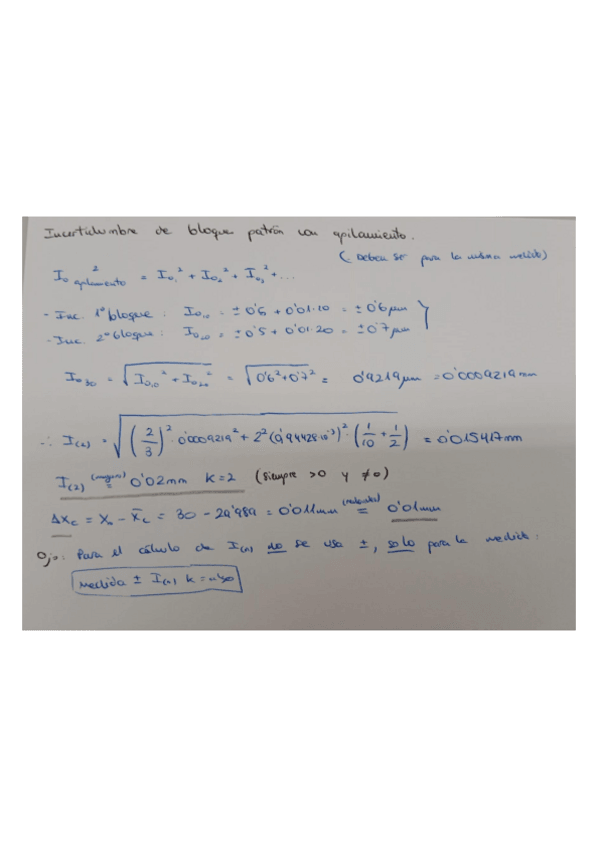 Incertidumbre de bloque patrón con apilamiento.
(Deben ser para la misma medida)
I₀ apilamiento² = I₀₁² + I₀₂² + I₀₃² + ...
- Inc. 1º bloque: I₀₁₀ = ±0'5 + 0'01·10 = ±0'6 μm
- Inc. 2º bloque: I₀₂₀ = ±0'5 + 0'01·20 = ±0'7 μm
I₀₃₀ = √(I₀₁₀² + I₀₂₀²) = √(0'6² + 0'7²) = 0'9219 μm = 0'0009219 mm
∴ I₍₂₎ = √((2/3)² · 0'0009219² + 2² (9'9442810⁻³)² · (1/10 + 1/2)) = 0'015417 mm
I₍₂₎ = 0'02 mm K=2 (siempre >0 y ≠0)
ΔXc = X₀ - X̄c = 30 - 29'989 = 0'011 mm (redondeo) = 0'01 mm
Ojo: Para el cálculo de I₍ₙ₎ no se usa ±, solo para la medida:
medida ± I₍ₙ₎ K=